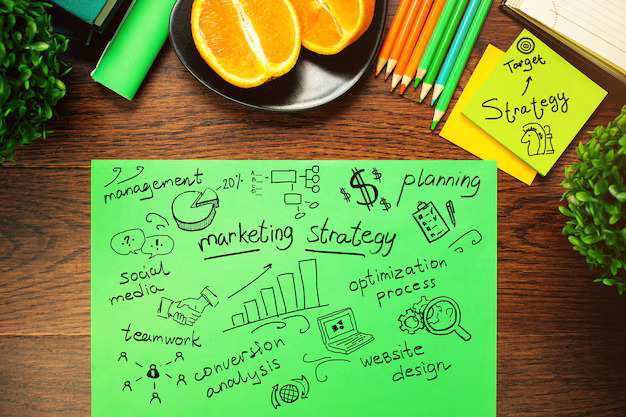 Target
Strategy
management
-20%
$ $ $
planning
marketing strategy
social
media
optimization
process
teamwork
conversion
analysis
website
design